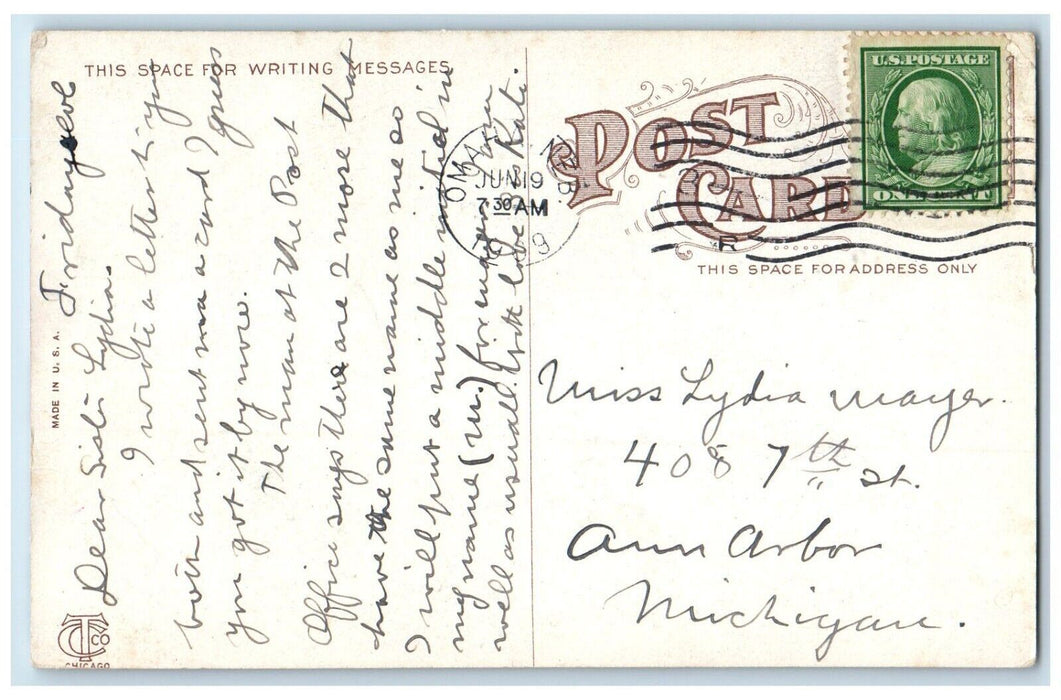 THIS SPACE FOR WRITING MESSAGES
POST
CARD
U.S. POSTAGE
ONE CENT
OMAHA, NEB
JUN 19
7 30 AM
THIS SPACE FOR ADDRESS ONLY
MADE IN U. S. A.
Friday eve
Dear Sister Lydia.
I wrote a letter to you
both and sent ma a card I guess
you got it by now.
The man at the Post
Office says there are 2 more that
have the same name as me so
I will put a middle initial in
my name (M.) for enough. Am
well as usual. With love Kati.
Miss Lydia Mayer.
408 7th St.
Ann Arbor
Michigan.
CTCO
CHICAGO